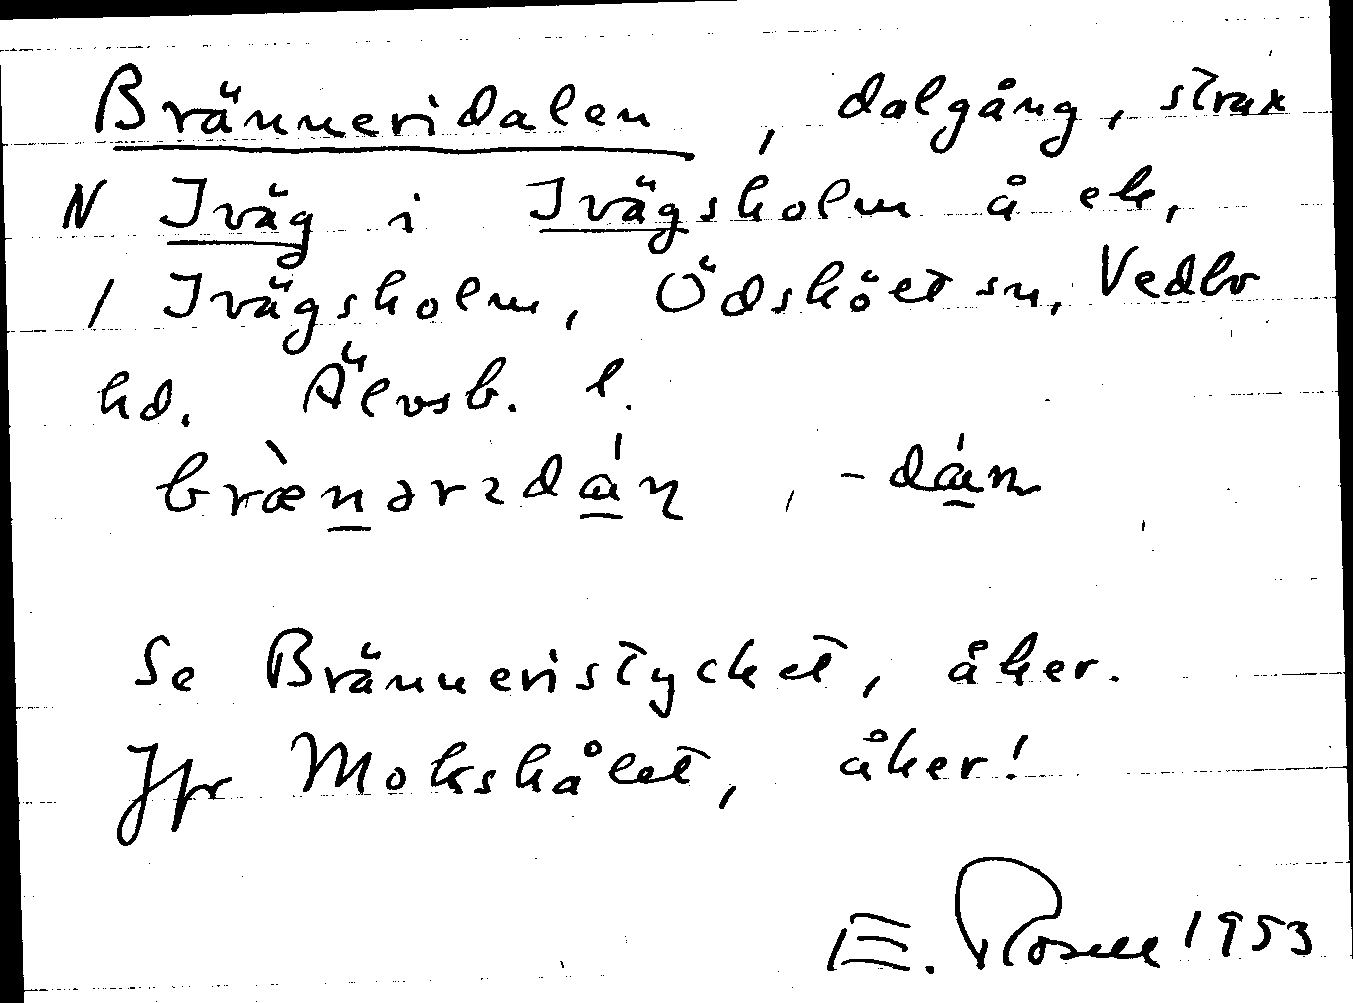 Bränneridalen, dalgång, strax
N Iväg i Ivägsholm å ek,
1 Ivägsholm, Ödsköet sn, Vedbo
hd. Älvsb. l.
bræ̀nərɩdán, -dán
Se Bränneristycket, åker.
Jfr Mokshålet, åker!
E. Rosell 1953